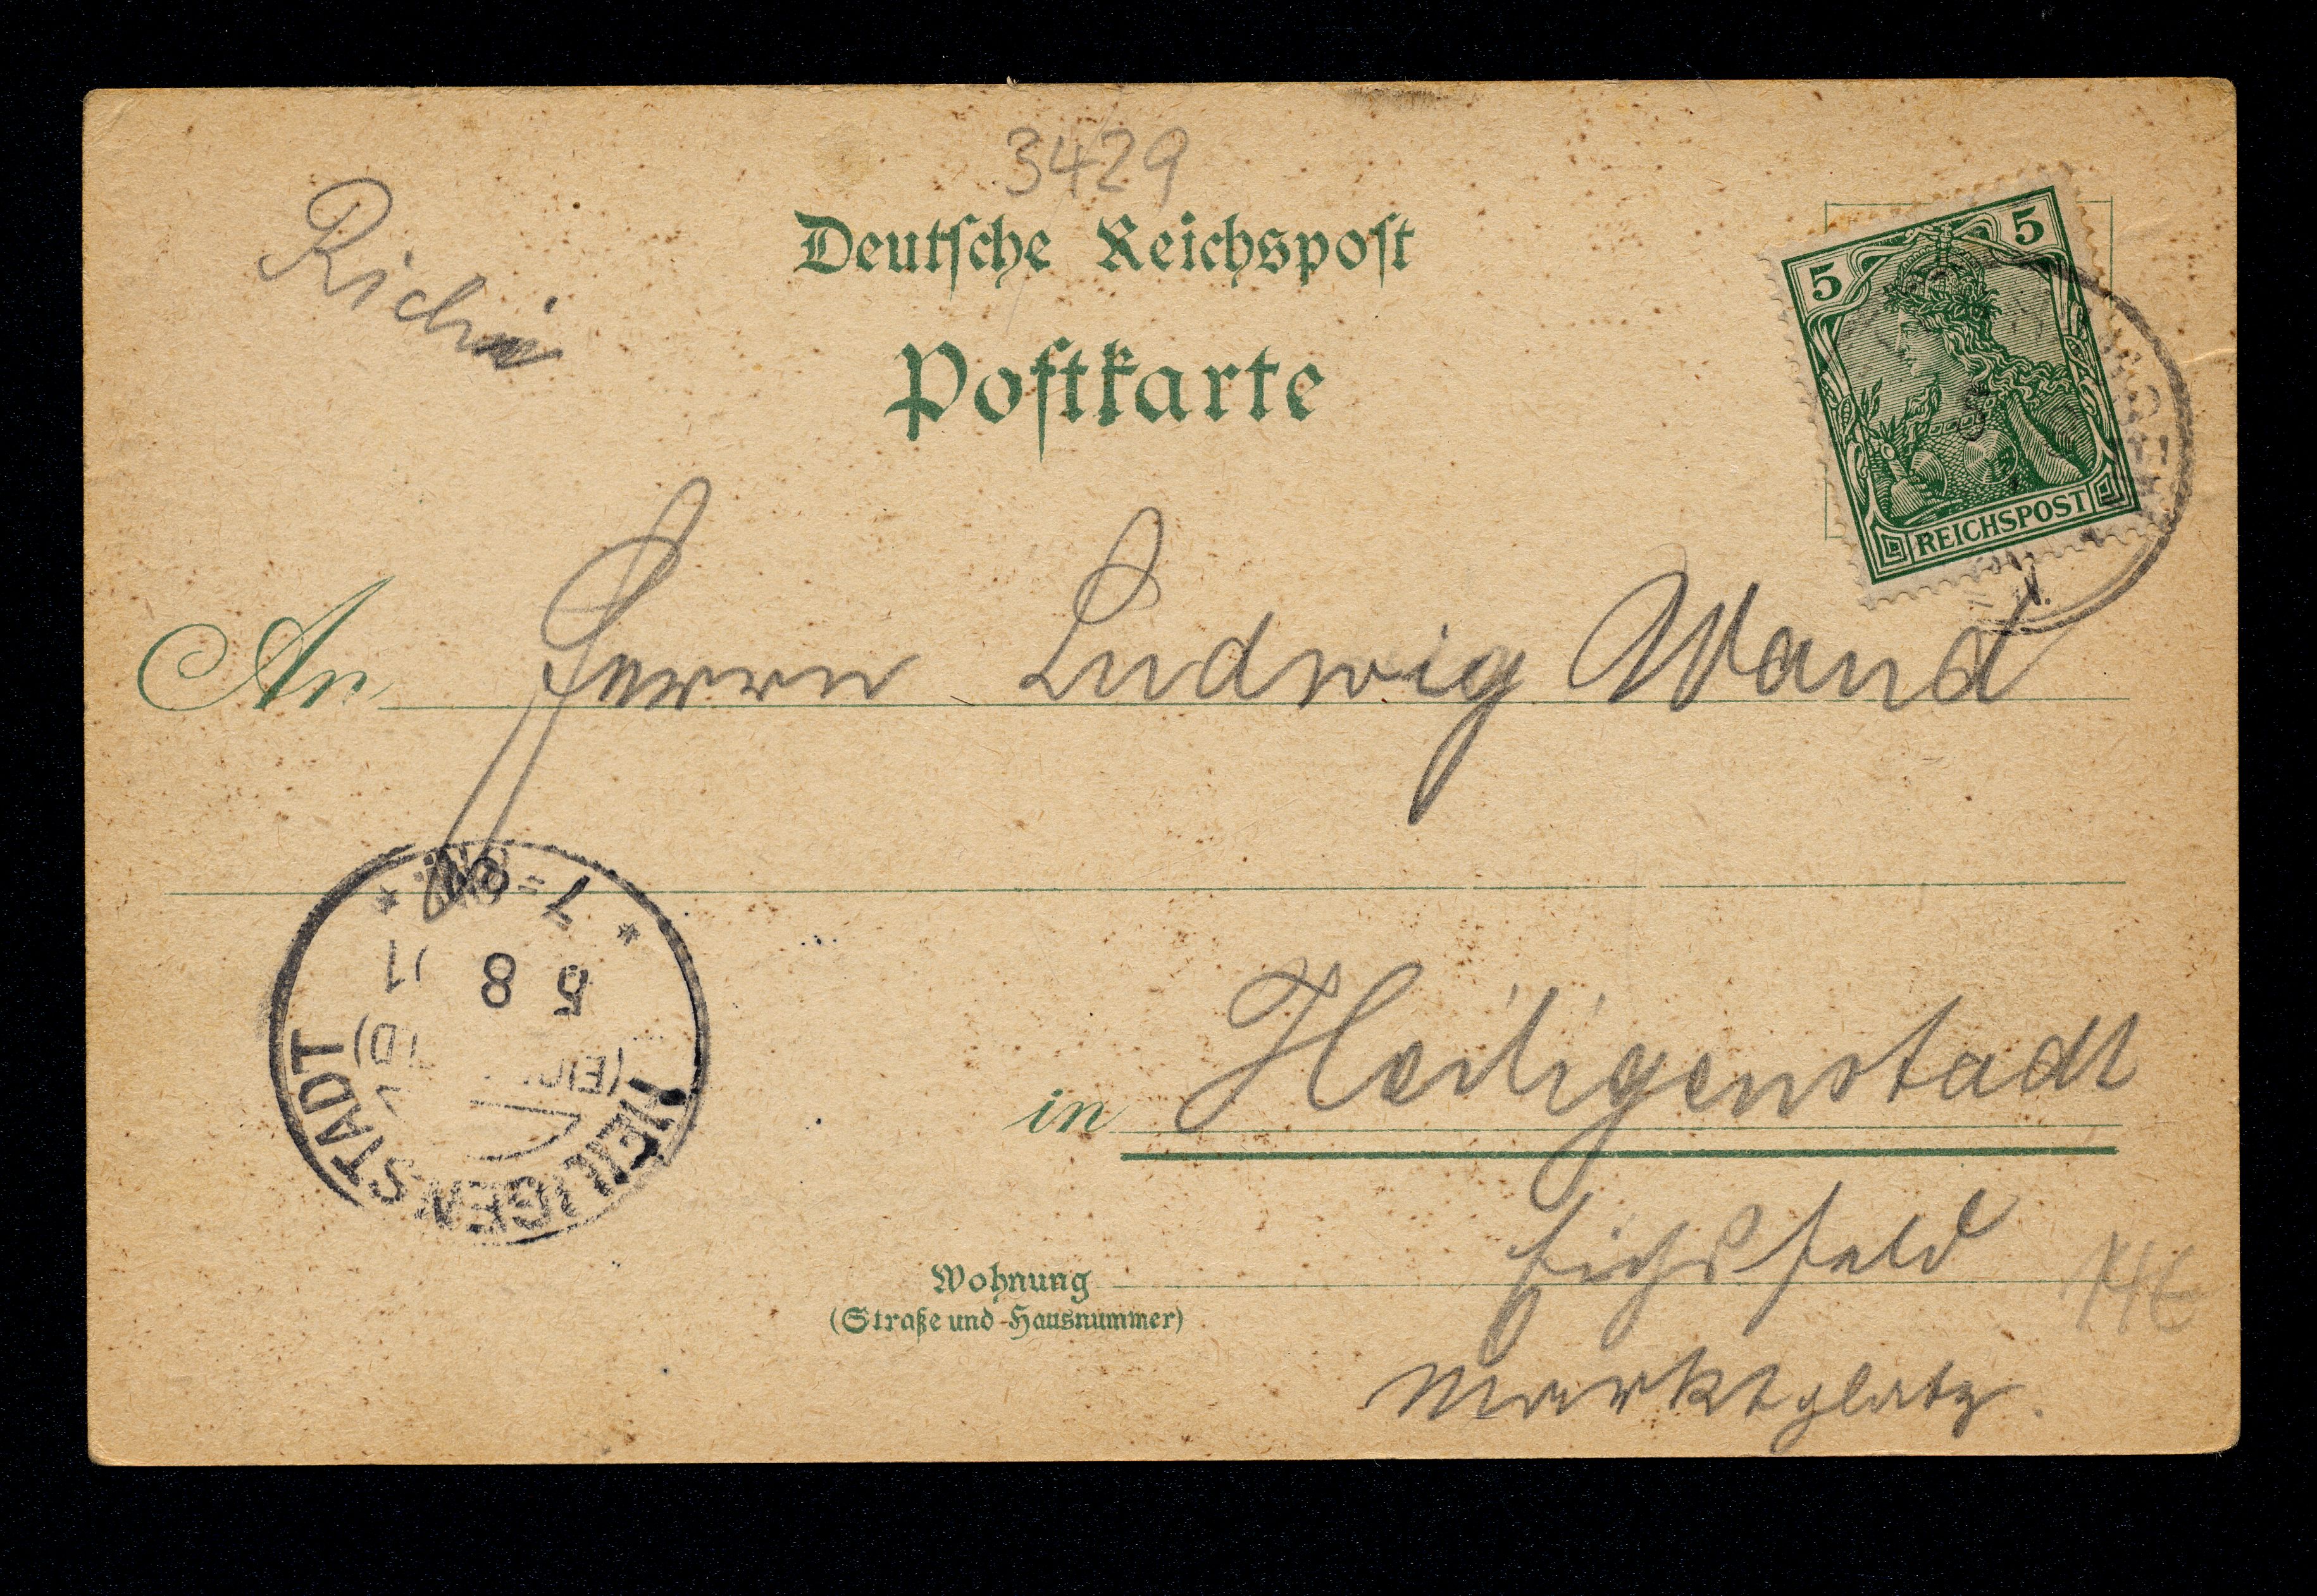 3429
Deutsche Reichspost
Postkarte
5 5
REICHSPOST
An Herrn Ludwig Wand
in Heiligenstadt
Eichsfeld
Wohnung
(Straße und Hausnummer)
Marktplatz.
HEILIGENSTADT
5 8
7-8N